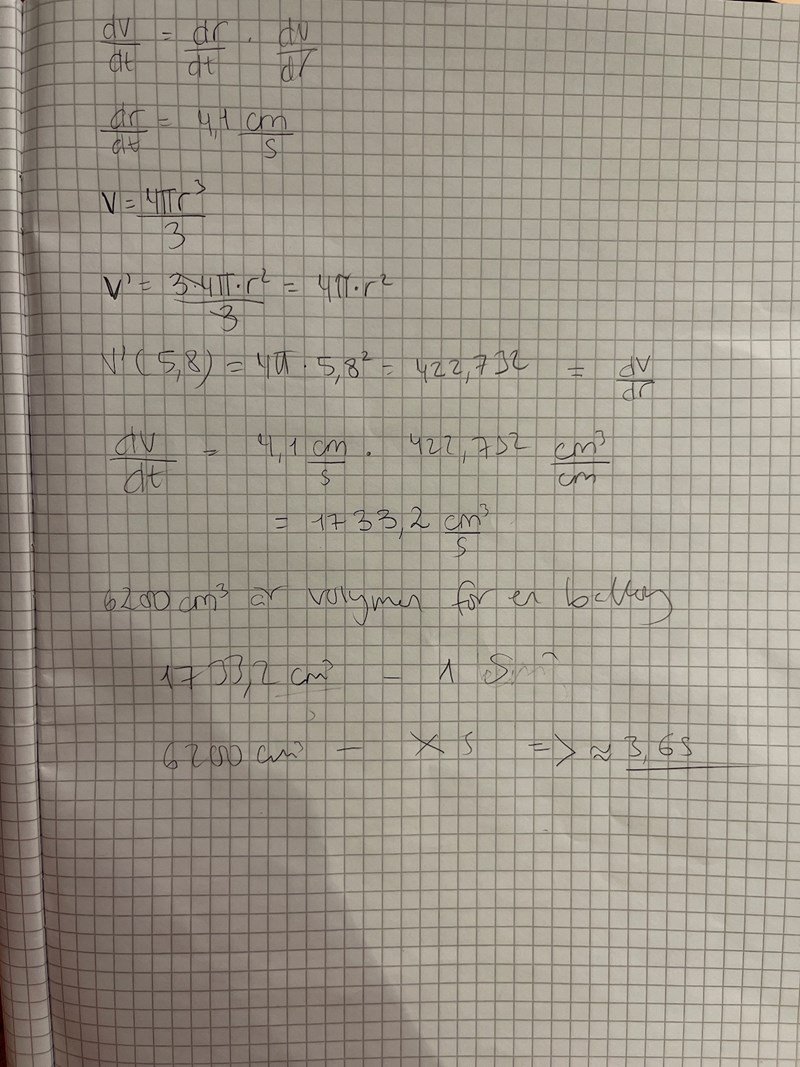 dv/dt = dr/dt · dv/dr
dr/dt = 4,1 cm/s
V = 4πr³/3
V' = 3·4π·r²/3 = 4π·r²
V'(5,8) = 4π · 5,8² = 422,732 = dv/dr
dv/dt = 4,1 cm/s · 422,732 cm³/cm
= 1733,2 cm³/s
6200 cm³ är volymen för en
1733,2 cm³ – 1 S
6200 cm³ – X s => ≈ 3,6s